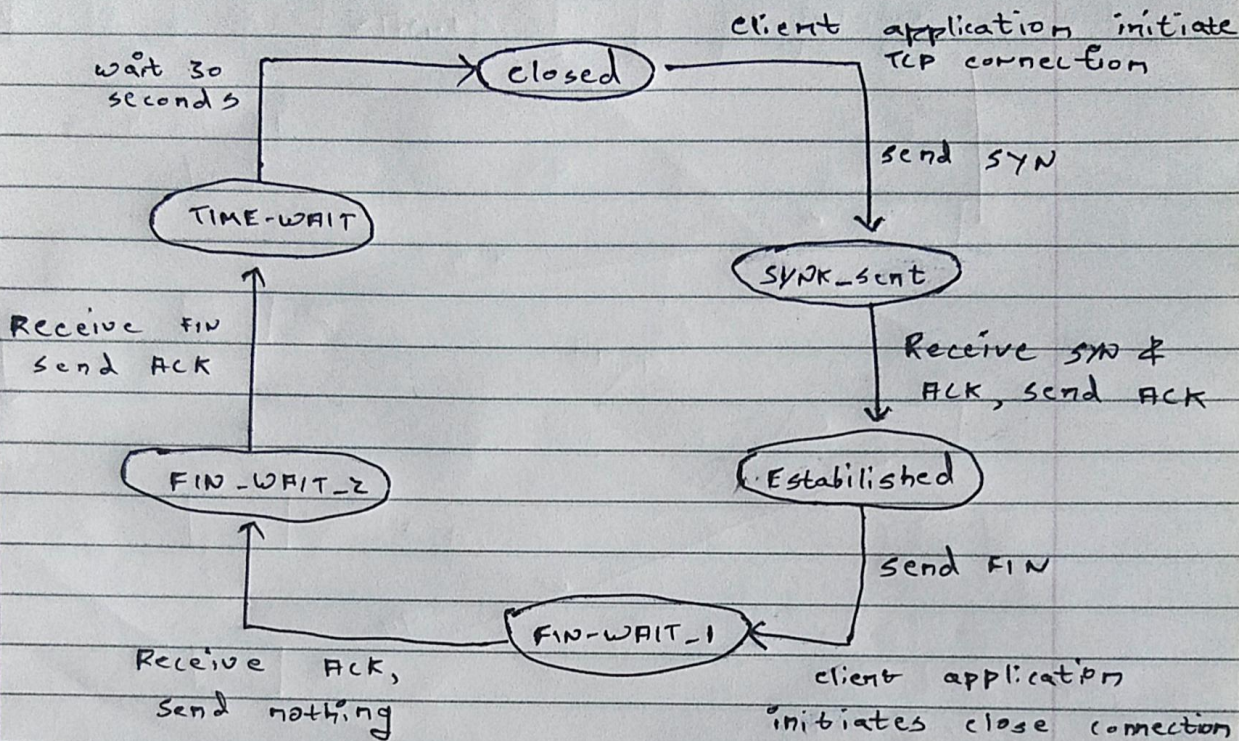 client application initiate
TCP connection
wait 30
seconds
closed
send SYN
TIME-WAIT
SYNK_sent
Receive FIN
send ACK
Receive SYN &
ACK, send ACK
FIN_WAIT_2
Estabilished
send FIN
FIN-WAIT_1
Receive ACK,
send nothing
client application
initiates close connection